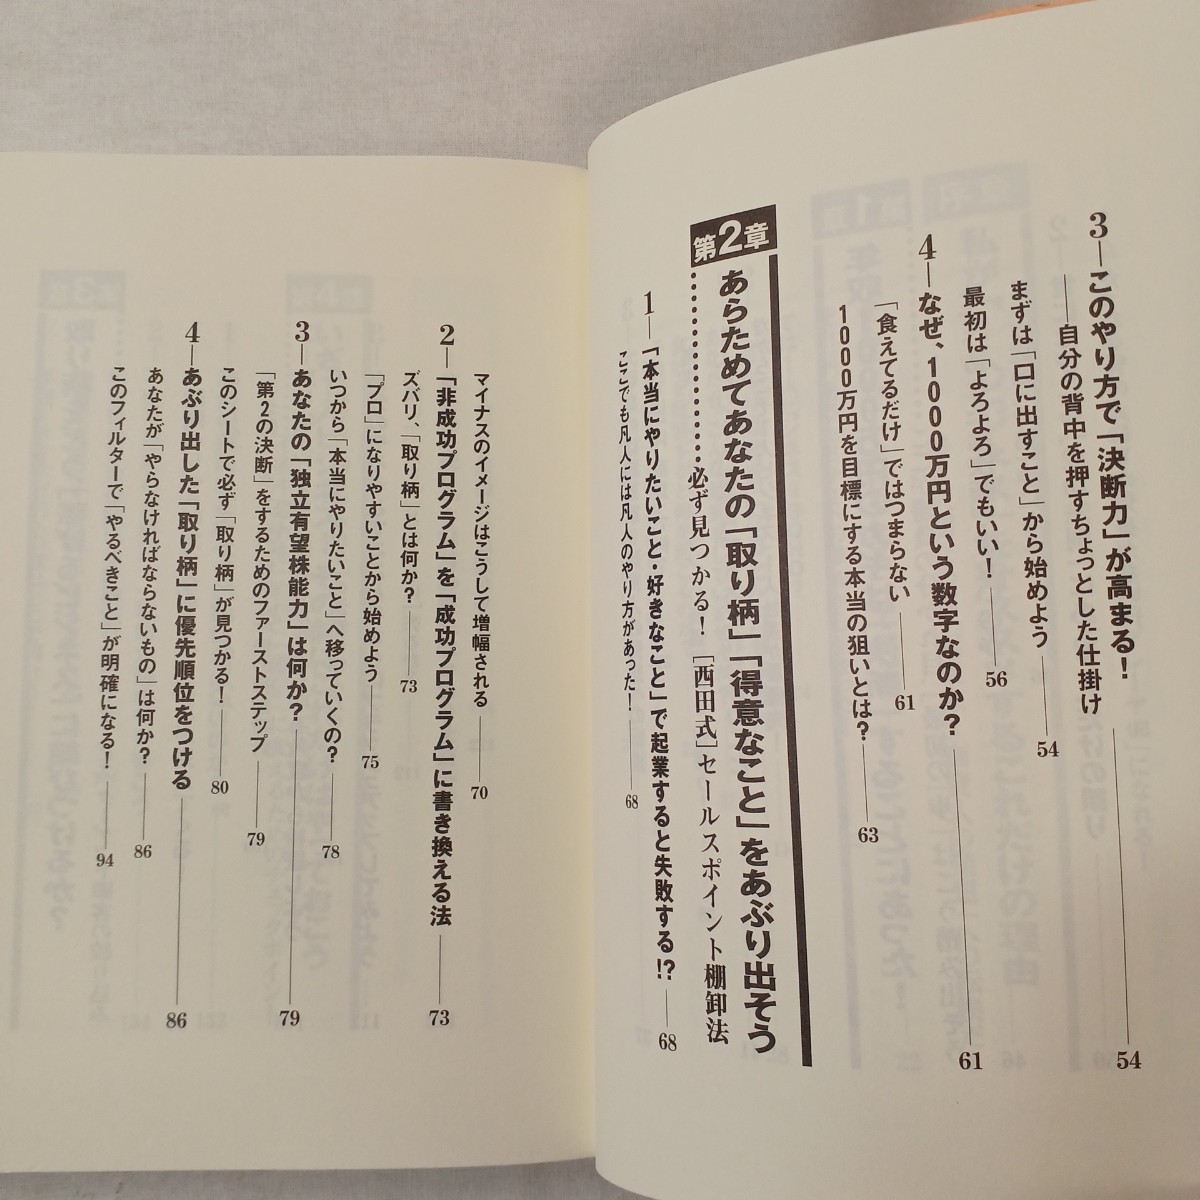 3―このやり方で「決断力」が高まる！――54
――自分の背中を押すちょっとした仕掛け
まずは「口に出すこと」から始めよう――54
最初は「よろよろ」でもいい！――56
4―なぜ、1000万円という数字なのか？――61
「食えてるだけ」ではつまらない――61
1000万円を目標にする本当の狙いとは？――63
第2章 あらためてあなたの「取り柄」「得意なこと」をあぶり出そう
……………………必ず見つかる！［西田式］セールスポイント棚卸法
1―「本当にやりたいこと・好きなこと」で起業すると失敗する!?――68
ここでも凡人には凡人のやり方があった！――68
マイナスのイメージはこうして増幅される――70
2―「非成功プログラム」を「成功プログラム」に書き換える法――73
ズバリ、「取り柄」とは何か？――73
「プロ」になりやすいことから始めよう――75
いつから「本当にやりたいこと」へ移っていくの？――78
3―あなたの「独立有望株能力」は何か？――79
「第2の決断」をするためのファーストステップ――79
このシートで必ず「取り柄」が見つかる！――80
4―あぶり出した「取り柄」に優先順位をつける――86
あなたが「やらなければならないもの」は何か？――86
このフィルターで「やるべきこと」が明確になる！――94